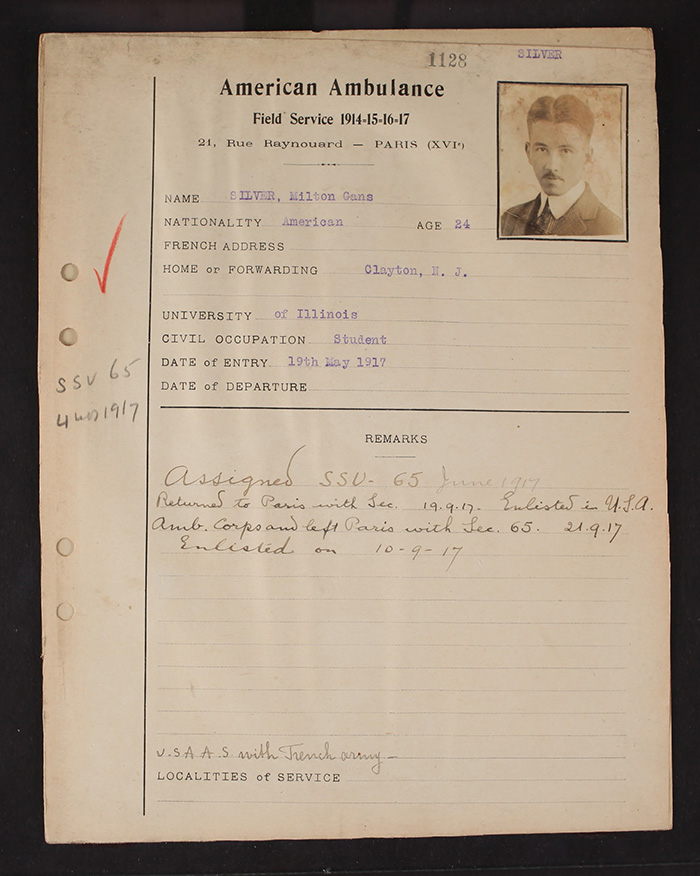 1128 SILVER
American Ambulance
Field Service 1914-15-16-17
21, Rue Raynouard — PARIS (XVIe)
NAME SILVER, Milton Gans
NATIONALITY American AGE 24
FRENCH ADDRESS
HOME or FORWARDING Clayton, N. J.
UNIVERSITY of Illinois
CIVIL OCCUPATION Student
DATE of ENTRY 19th May 1917
DATE of DEPARTURE
SSU 65
4 mos 1917
REMARKS
Assigned SSU- 65 June 1917
Returned to Paris with Sec. 19.9.17. Enlisted in U.S.A.
Amb. Corps and left Paris with Sec. 65. 21.9.17
Enlisted on 10-9-17
U.S.A.A.S with French army —
LOCALITIES of SERVICE